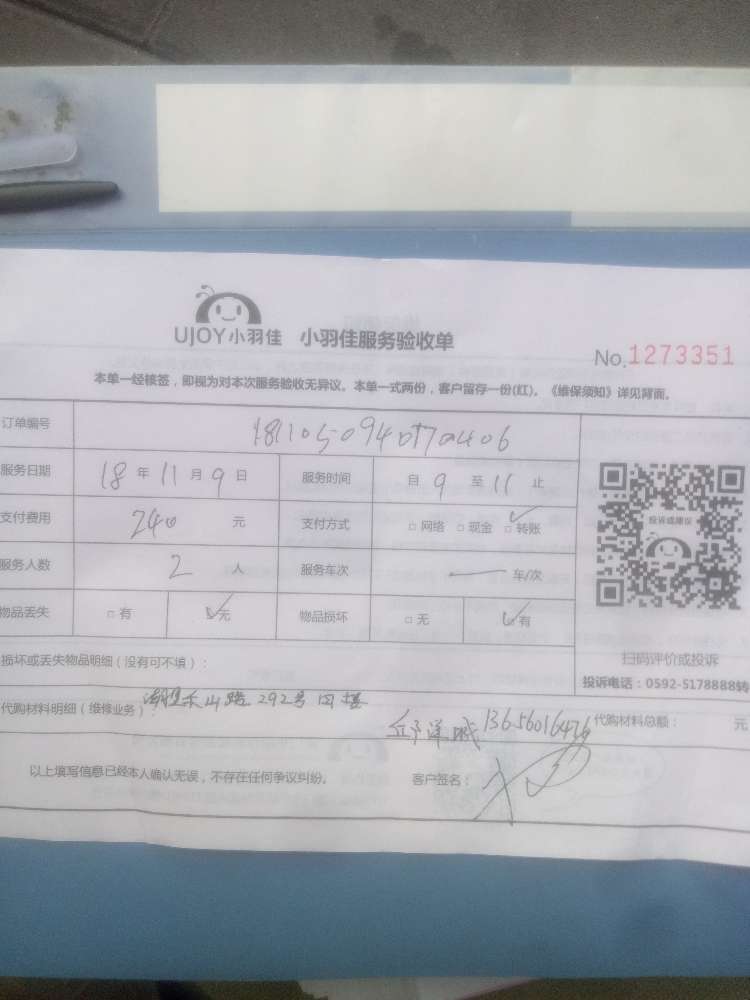 UJOY小羽佳 小羽佳服务验收单
No.1273351
本单一经核签，即视为对本次服务验收无异议。本单一式两份，客户留存一份(红)。《维保须知》详见背面。
订单编号
服务日期 18 年 11 月 9 日 服务时间 自 9 至 11 止
支付费用 240 元 支付方式 □ 网络 □ 现金 □ 转账
服务人数 2 人 服务车次 — 车/次
物品丢失 □ 有 □ 无 物品损坏 □ 无 □ 有
投诉或建议
扫码评价或投诉
投诉电话：0592-5178888转
损坏或丢失物品明细（没有可不填）：
代购材料明细（维修业务）： 禾山路292号
代购材料总额： 元
以上填写信息已经本人确认无误，不存在任何争议纠纷。 客户签名：